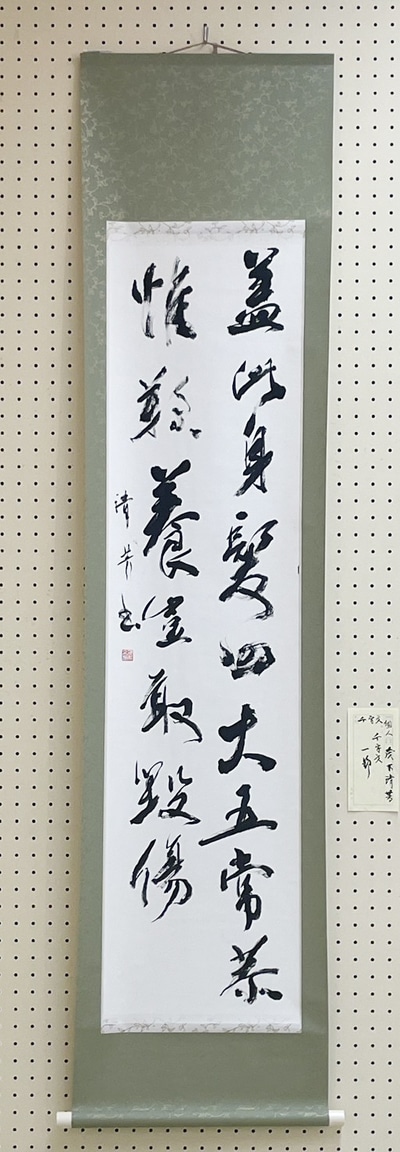 盖此身髮四大五常恭
惟鞠養豈敢毀傷
清芳書
千字文
一節